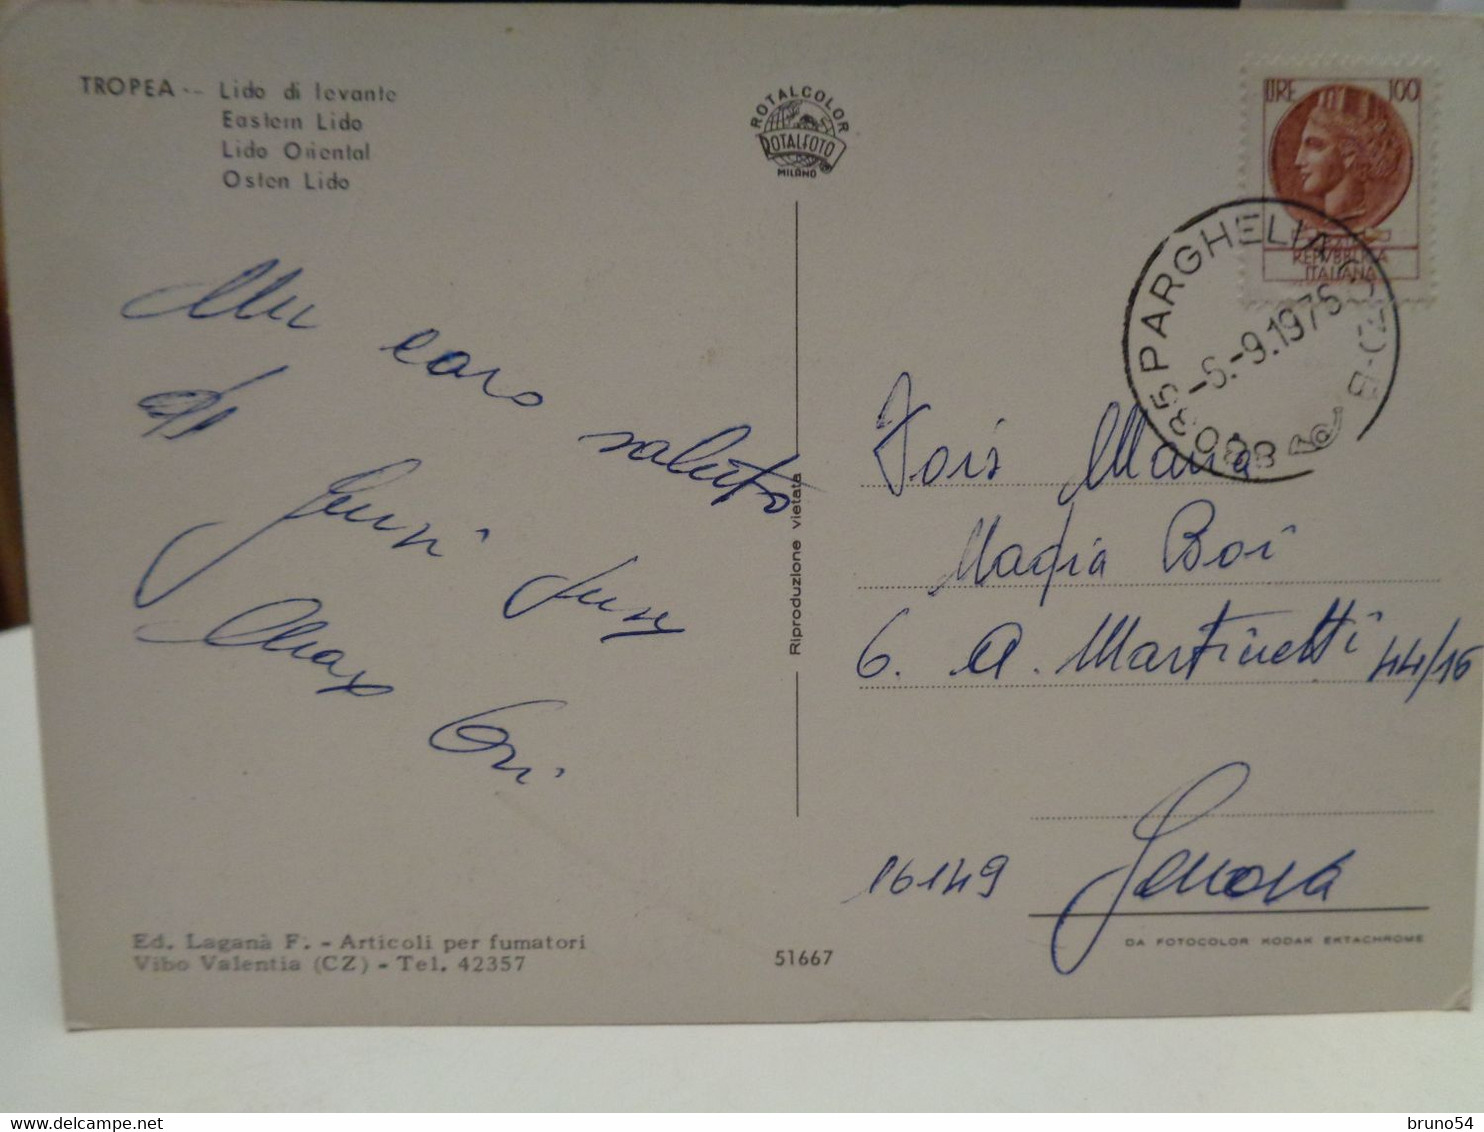 TROPEA -- Lido di levante
Eastern Lido
Lido Oriental
Osten Lido
ROTALCOLOR
ROTALFOTO
MILANO
LIRE 100
REPVBBLICA
ITALIANA
88035 PARGHELIA (CZ) - B
-6.-9.1975
caro
saluto
Max
Maria
Boi
6. A. Martinetti 44/16
16149 Genova
Riproduzione vietata
Ed. Laganà F. - Articoli per fumatori
Vibo Valentia (CZ) - Tel. 42357
51667
DA FOTOCOLOR KODAK EKTACHROME
bruno54